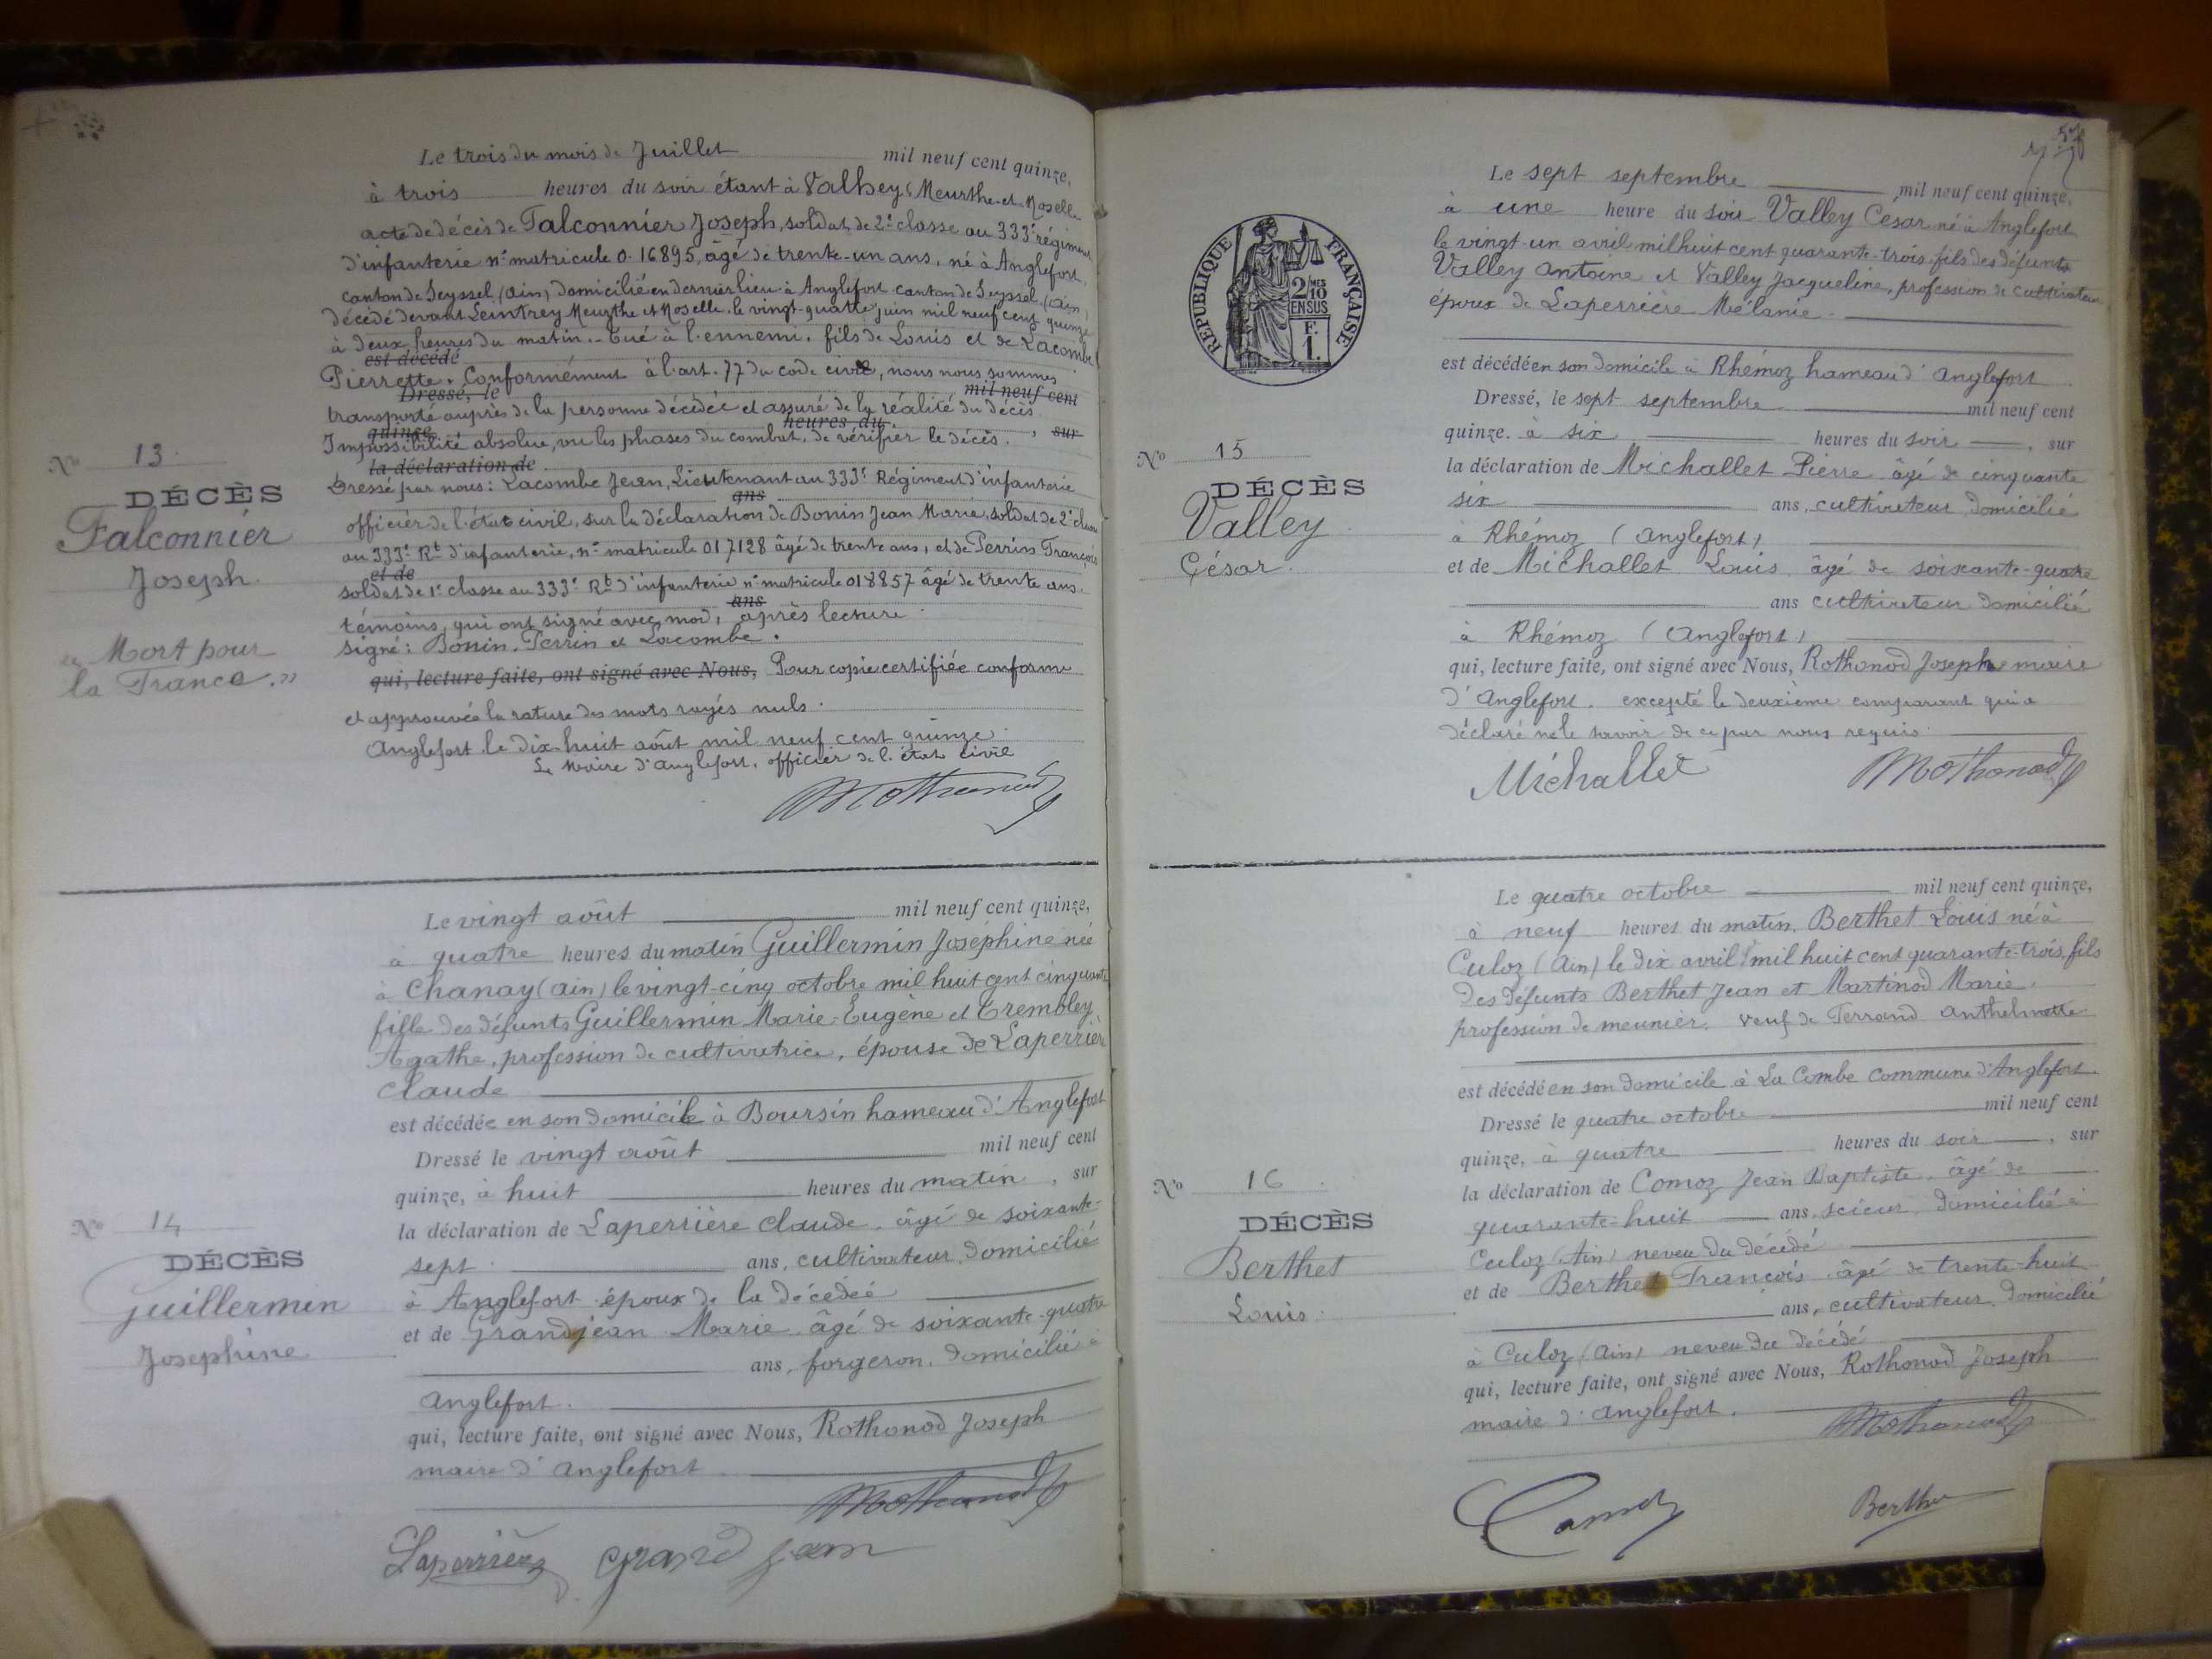 Le trois du mois de Juillet mil neuf cent quinze,
à trois heures du soir étant à Valhey (Meurthe-et-Moselle
acte de décès de Falconnier Joseph, soldat de 2e classe au 333e régiment
d'infanterie n° matricule 0.16895, âgé de trente-un ans, né à Anglefort,
canton de Seyssel, (Ain) domicilié en dernier lieu à Anglefort canton de Seyssel (Ain)
décédé devant Leintrey Meurthe et Moselle, le vingt-quatre juin mil neuf cent quinze
à deux heures du matin. - Tué à l'ennemi. fils de Louis et de Lacombe
est décédé
Pierrette. Conformément à l'art. 77 du code civil, nous nous sommes
Dressé, le mil neuf cent
transporté auprès de la personne décédée et assuré de la réalité du décès.
quinze heures du , sur
Impossibilité absolue, vu les phases du combat, de vérifier le décès.
la déclaration de
Dressé par nous: Lacombe Jean, Lieutenant au 333e Régiment d'infanterie
ans
officier de l'état civil, sur la déclaration de Bonin Jean Marie, soldat de 2e classe
au 333e Rt d'infanterie, n° matricule 017128 âgé de trente ans, et de Perrin François
et de
soldat de 1e classe au 333e Rt d'infanterie n° matricule 018857 âgé de trente ans.
ans
témoins, qui ont signé avec moi, après lecture
signé: Bonin, Perrin et Lacombe.
qui, lecture faite, ont signé avec Nous, Pour copie certifiée conforme
et approuvée la rature des mots rayés nuls.
Anglefort le dix-huit août mil neuf cent quinze.
Le Maire d'Anglefort, officier de l'état civil
Rothonod
No 13
DÉCÈS
Falconnier
Joseph
" Mort pour
la France. "
Le vingt août mil neuf cent quinze,
à quatre heures du matin Guillermin Joséphine née
à Chanay (Ain) le vingt-cinq octobre mil huit cent cinquante
fille des défunts Guillermin Marie-Eugène et Trembley
Agathe, profession de cultivatrice, épouse de Laperrière
Claude
est décédée en son domicile à Boursin hameau d'Anglefort
Dressé le vingt août mil neuf cent
quinze, à huit heures du matin, sur
la déclaration de Laperrière Claude, âgé de soixante-
sept ans, cultivateur, domicilié
à Anglefort époux de la décédée
et de Grandjean Marie âgé de soixante-quatre
ans, forgeron, domicilié à
Anglefort.
qui, lecture faite, ont signé avec Nous, Rothonod Joseph
maire d'Anglefort
Rothonod
Laperrière Grand jean
No 14
DÉCÈS
Guillermin
Joséphine
RÉPUBLIQUE FRANÇAISE
2 MES
10
EN SUS
F.
1.
Le sept septembre mil neuf cent quinze,
à une heure du soir Valley César né à Anglefort
le vingt-un avril mil huit cent quarante-trois fils des défunts
Valley Antoine et Valley Jacqueline, profession de cultivateur
époux de Laperrière Mélanie.
est décédé en son domicile à Rhémoz hameau d'Anglefort
Dressé, le sept septembre mil neuf cent
quinze. à six heures du soir, sur
la déclaration de Michallet Pierre âgé de cinquante
six ans, cultivateur domicilié
à Rhémoz (Anglefort)
et de Michallet Louis âgé de soixante-quatre
ans cultivateur domicilié
à Rhémoz (Anglefort)
qui, lecture faite, ont signé avec Nous, Rothonod Joseph maire
d'Anglefort. excepté le deuxième comparant qui a
déclaré ne le savoir de ce par nous requis.
Michallet Rothonod
No 15
DÉCÈS
Valley
César.
Le quatre octobre mil neuf cent quinze,
à neuf heures du matin, Berthet Louis né à
Culoz (Ain) le dix avril mil huit cent quarante-trois, fils
des défunts Berthet Jean et Martinod Marie.
profession de meunier. veuf de Ferrand Anthelmette
est décédé en son domicile à La Combe commune d'Anglefort.
Dressé le quatre octobre mil neuf cent
quinze, à quatre heures du soir, sur
la déclaration de Comoz Jean Baptiste, âgé de
quarante-huit ans, scieur, domicilié à
Culoz (Ain) neveu du décédé
et de Berthet François âgé de trente-huit
ans, cultivateur, domicilié
à Culoz (Ain) neveu du décédé
qui, lecture faite, ont signé avec Nous, Rothonod Joseph
maire d'Anglefort.
Rothonod
Comoz Berthet
No 16
DÉCÈS
Berthet
Louis.